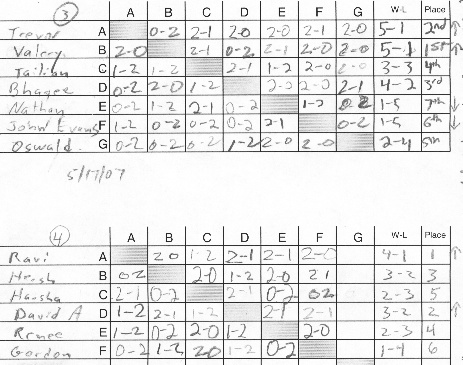 3 A B C D E F G W-L Place
Trevor A 0-2 2-1 2-0 2-0 2-1 2-0 5-1 2nd ↑
Valery B 2-0 2-1 0-2 2-1 2-0 2-0 5-1 1st ↑
C 1-2 1-2 2-1 1-2 2-0 2-0 3-3 4th
Bhagee D 0-2 2-0 1-2 2-0 2-0 2-1 4-2 3rd
Nathan E 0-2 1-2 2-1 0-2 0-2 1-5 7th ↓
John Evans F 1-2 0-2 0-2 0-2 2-1 0-2 1-5 6th ↓
Oswald. G 0-2 0-2 0-2 1-2 2-0 2-0 2-4 5th
5/17/07
4 A B C D E F G W-L Place
Ravi A 2 0 1-2 2-1 2-1 2-0 4-1 1 ↑
Hersh B 0 2 2-0 1-2 2-0 2 1 3-2 3
Harsha C 2-1 0-2 2-1 0-2 0 2 2-3 5
David A D 1-2 2-1 1-2 2-1 2-1 3-2 2 ↑
Renee E 1-2 0-2 2-0 1-2 2-0 2-3 4
Gordon F 0-2 1-2 2 0 1-2 0-2 1-4 6